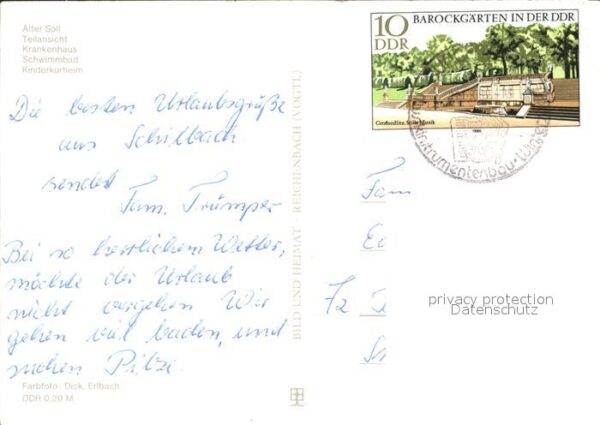 Alter Söll
Teilansicht
Krankenhaus
Schwimmbad
Kinderkurheim
10
DDR
BAROCKGÄRTEN IN DER DDR
Großsedlitz, Stille Musik
Musikinstrumentenbau
Die besten Urlaubsgrüße
aus Schilbach
sendet
Fam. Trümper
Bei so herrlichem Wetter,
möchte der Urlaub
nicht vergehen Wir
gehen viel baden, und
suchen Pilze.
Farbfoto: Dick, Erlbach
DDR 0,20 M
BILD UND HEIMAT · REICHENBACH (VOGTL)
Fam
72
privacy protection
Datenschutz